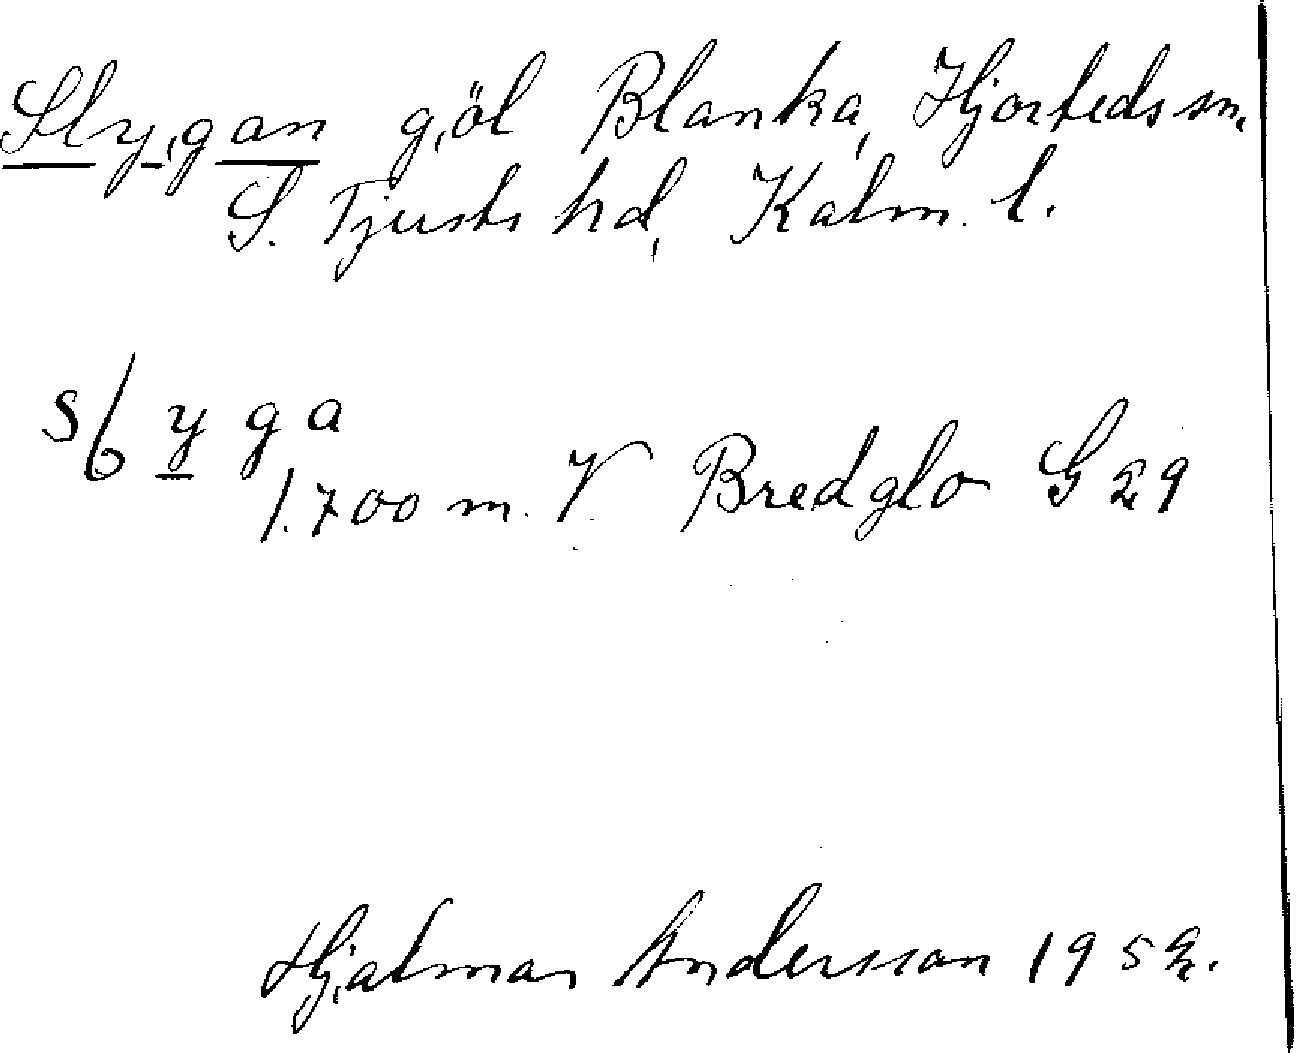 Slygan göl Blanka, Hjorteds sn,
S. Tjusts hd, Kalm. l.
slyga
1.700 m. V. Bredglo G 29
Hjalmar Andersson 1952.